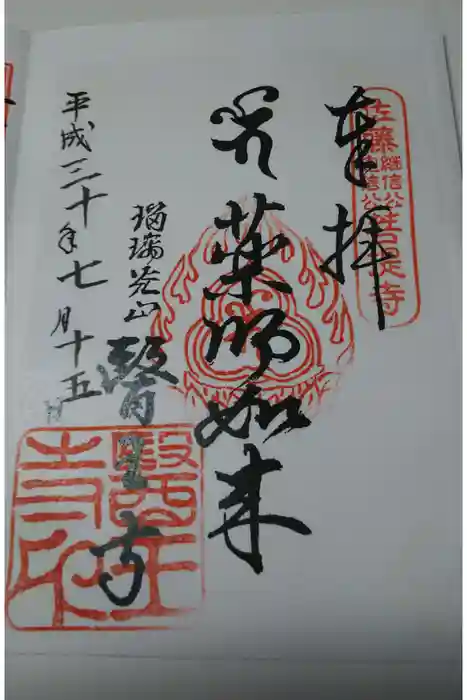 奉拝
佐藤継信公忠信公菩提寺
薬師如来
瑠璃光山
醫王寺
平成三十年七月十五日
醫王寺印